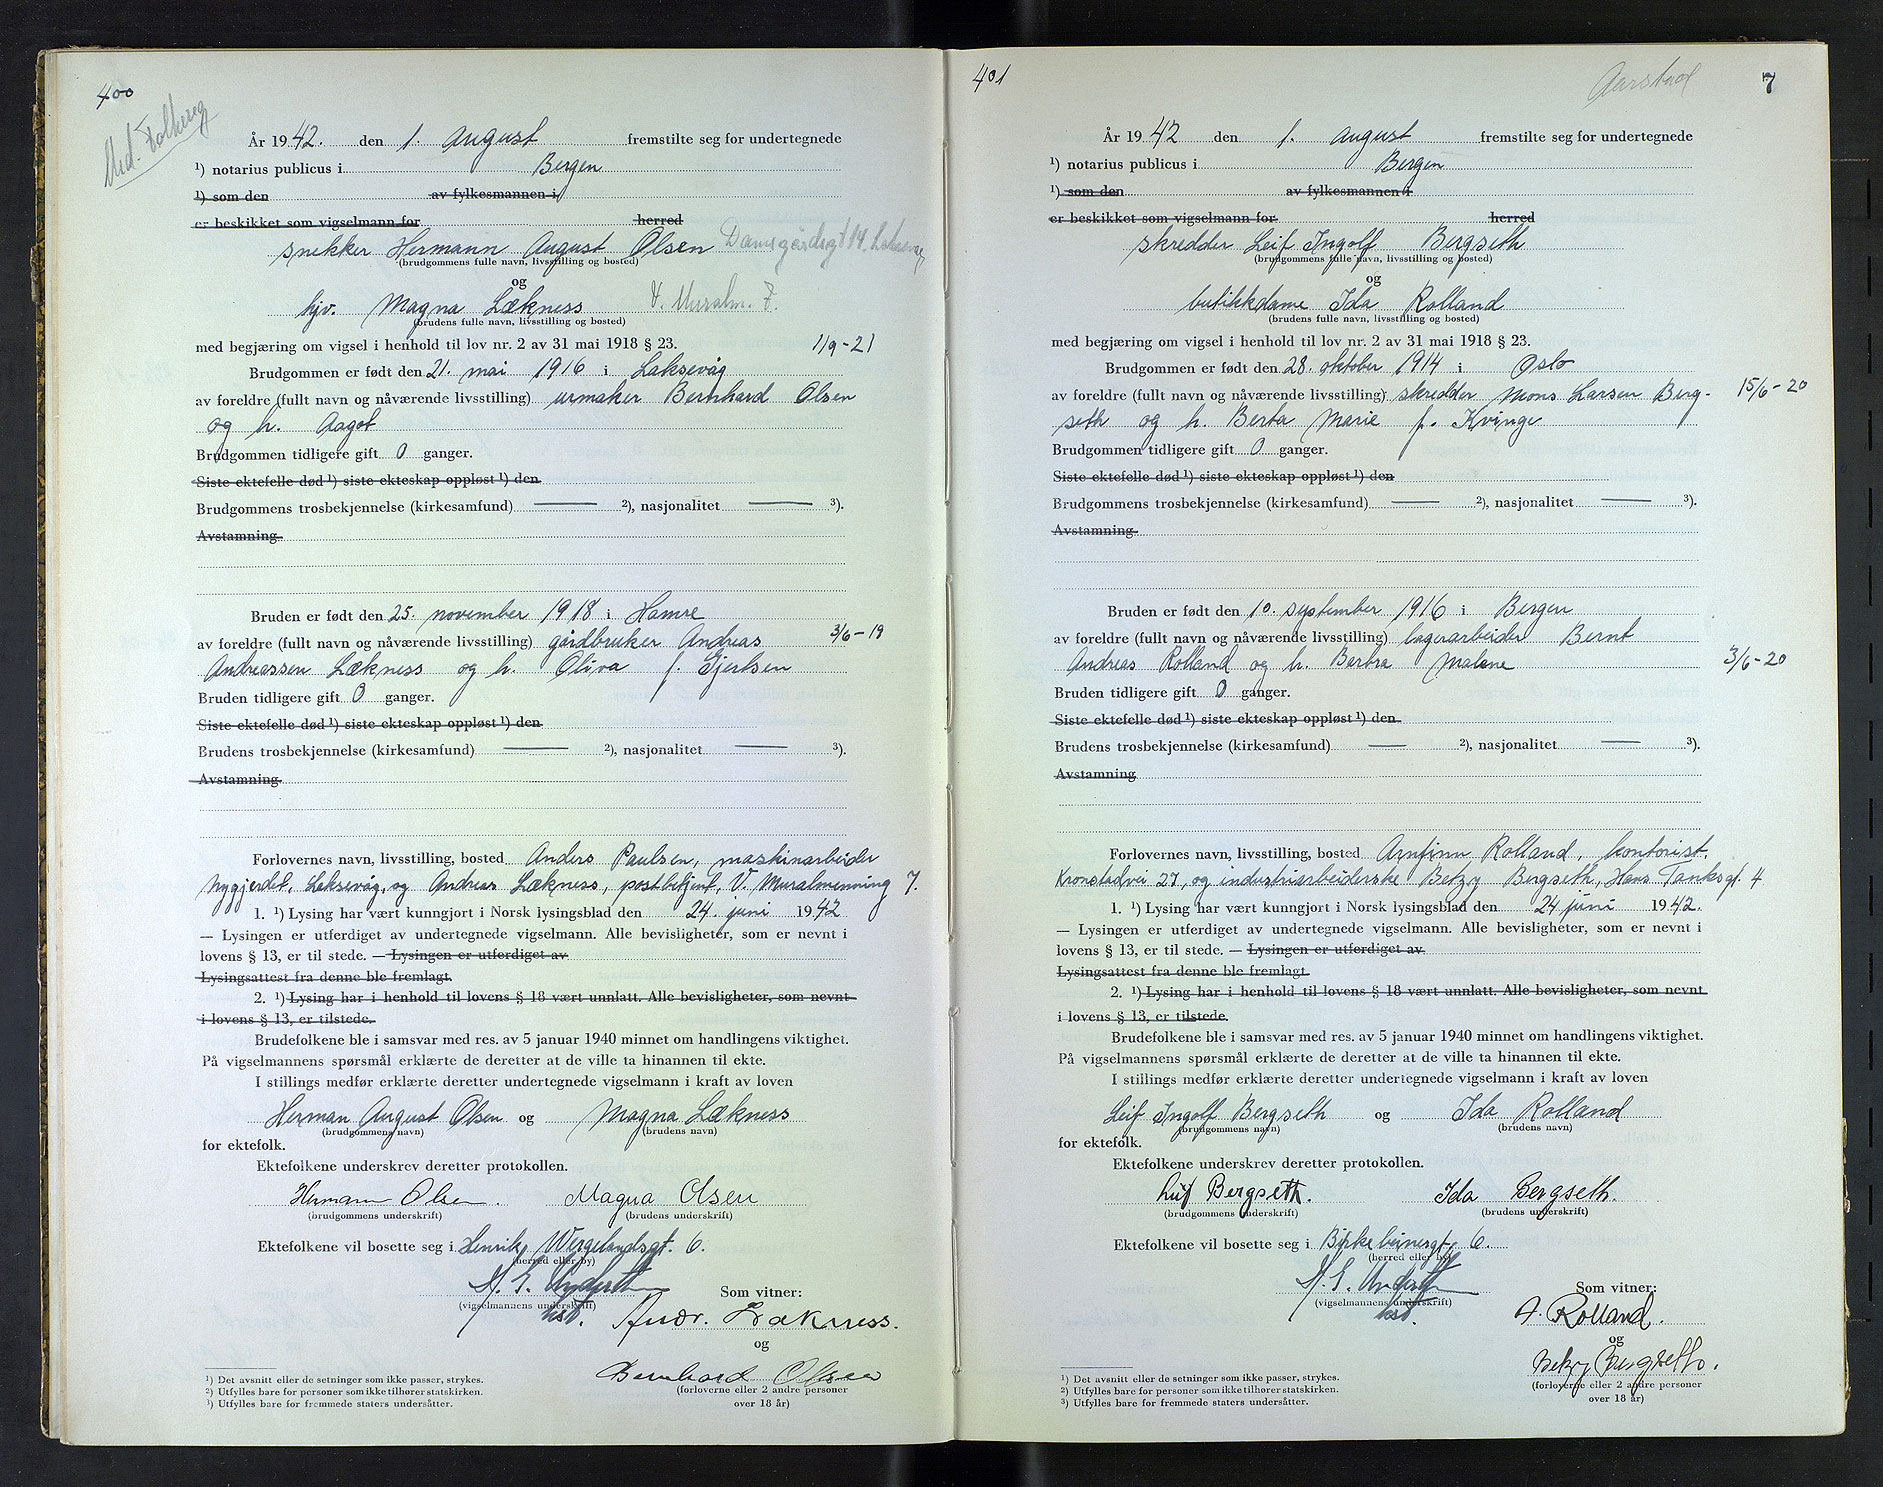 400
Md. Folkereg
År 1942. den 1. August fremstilte seg for undertegnede
¹) notarius publicus i Bergen
¹) som den av fylkesmannen i
er beskikket som vigselmann for herred
snekker Hermann August Olsen Damsgårdsgt 14, Laksevåg
(brudgommens fulle navn, livsstilling og bosted)
og
hjv. Magna Lækness V. Muralm. 7.
(brudens fulle navn, livsstilling og bosted)
med begjæring om vigsel i henhold til lov nr. 2 av 31 mai 1918 § 23. 11/9-21
Brudgommen er født den 21. mai 1916 i Laksevåg
av foreldre (fullt navn og nåværende livsstilling) urmaker Bernhard Olsen
og h. Aagot
Brudgommen tidligere gift 0 ganger.
Siste ektefelle død ¹) siste ekteskap oppløst ¹) den
Brudgommens trosbekjennelse (kirkesamfund) — ²), nasjonalitet — ³).
Avstamning
Bruden er født den 25. november 1918 i Hamre
av foreldre (fullt navn og nåværende livsstilling) gårdbruker Andreas 3/6-19
Andreassen Lækness og h. Oliva f. Gjertsen
Bruden tidligere gift 0 ganger.
Siste ektefelle død ¹) siste ekteskap oppløst ¹) den
Brudens trosbekjennelse (kirkesamfund) — ²), nasjonalitet — ³).
Avstamning
Forlovernes navn, livsstilling, bosted Anders Paulsen, maskinarbeider
Nygjerdet, Laksevåg, og Andreas Lækness, postbetjent, V. Muralmenning 7.
1. ¹) Lysing har vært kunngjort i Norsk lysingsblad den 24. juni 1942
— Lysingen er utferdiget av undertegnede vigselmann. Alle bevisligheter, som er nevnt i
lovens § 13, er til stede. — Lysingen er utferdiget av
Lysingsattest fra denne ble fremlagt.
2. ¹) Lysing har i henhold til lovens § 18 vært unnlatt. Alle bevisligheter, som nevnt
i lovens § 13, er tilstede.
Brudefolkene ble i samsvar med res. av 5 januar 1940 minnet om handlingens viktighet.
På vigselmannens spørsmål erklærte de deretter at de ville ta hinannen til ekte.
I stillings medfør erklærte deretter undertegnede vigselmann i kraft av loven
Herman August Olsen og Magna Lækness
(brudgommens navn) (brudens navn)
for ektefolk.
Ektefolkene underskrev deretter protokollen.
Hermann Olsen. Magna Olsen
(brudgommens underskrift) (brudens underskrift)
Ektefolkene vil bosette seg i Henrik Wergelandsgt. 6.
(herred eller by)
(vigselmannens underskrift) Som vitner:
kst. Andr. Lækness.
og
Bernhard Olsen
(forloverne eller 2 andre personer
over 18 år)
¹) Det avsnitt eller de setninger som ikke passer, strykes.
²) Utfylles bare for personer som ikke tilhører statskirken.
³) Utfylles bare for fremmede staters undersåtter.
401 Aarstad 7
År 1942 den 1. august fremstilte seg for undertegnede
¹) notarius publicus i Bergen
¹) som den av fylkesmannen i
er beskikket som vigselmann for herred
skredder Leif Ingolf Bergseth
(brudgommens fulle navn, livsstilling og bosted)
og
butikkdame Ida Rolland
(brudens fulle navn, livsstilling og bosted)
med begjæring om vigsel i henhold til lov nr. 2 av 31 mai 1918 § 23.
Brudgommen er født den 28. oktober 1914 i Oslo
av foreldre (fullt navn og nåværende livsstilling) skredder Mons Larsen Berg- 15/6-20
seth og h. Berta Marie f. Kvinge
Brudgommen tidligere gift 0 ganger.
Siste ektefelle død ¹) siste ekteskap oppløst ¹) den
Brudgommens trosbekjennelse (kirkesamfund) — ²), nasjonalitet — ³).
Avstamning
Bruden er født den 10. september 1916 i Bergen
av foreldre (fullt navn og nåværende livsstilling) lagerarbeider Bernt
Andreas Rolland og h. Barbra Malene 3/6-20
Bruden tidligere gift 0 ganger.
Siste ektefelle død ¹) siste ekteskap oppløst ¹) den
Brudens trosbekjennelse (kirkesamfund) — ²), nasjonalitet — ³).
Avstamning
Forlovernes navn, livsstilling, bosted Arnfinn Rolland, kontorist,
Kronstadvei 27, og industriarbeiderske Betzy Bergseth, Hans Tanksgt. 4
1. ¹) Lysing har vært kunngjort i Norsk lysingsblad den 24 juni 1942.
— Lysingen er utferdiget av undertegnede vigselmann. Alle bevisligheter, som er nevnt i
lovens § 13, er til stede. — Lysingen er utferdiget av
Lysingsattest fra denne ble fremlagt.
2. ¹) Lysing har i henhold til lovens § 18 vært unnlatt. Alle bevisligheter, som nevnt
i lovens § 13, er tilstede.
Brudefolkene ble i samsvar med res. av 5 januar 1940 minnet om handlingens viktighet.
På vigselmannens spørsmål erklærte de deretter at de ville ta hinannen til ekte.
I stillings medfør erklærte deretter undertegnede vigselmann i kraft av loven
Leif Ingolf Bergseth og Ida Rolland
(brudgommens navn) (brudens navn)
for ektefolk.
Ektefolkene underskrev deretter protokollen.
Leif Bergseth. Ida Bergseth.
(brudgommens underskrift) (brudens underskrift)
Ektefolkene vil bosette seg i Birkebeinergt. 6.
(herred eller by)
(vigselmannens underskrift) Som vitner:
kst. A. Rolland.
og
Betzy Bergseth.
(forloverne eller 2 andre personer
over 18 år)
¹) Det avsnitt eller de setninger som ikke passer, strykes.
²) Utfylles bare for personer som ikke tilhører statskirken.
³) Utfylles bare for fremmede staters undersåtter.